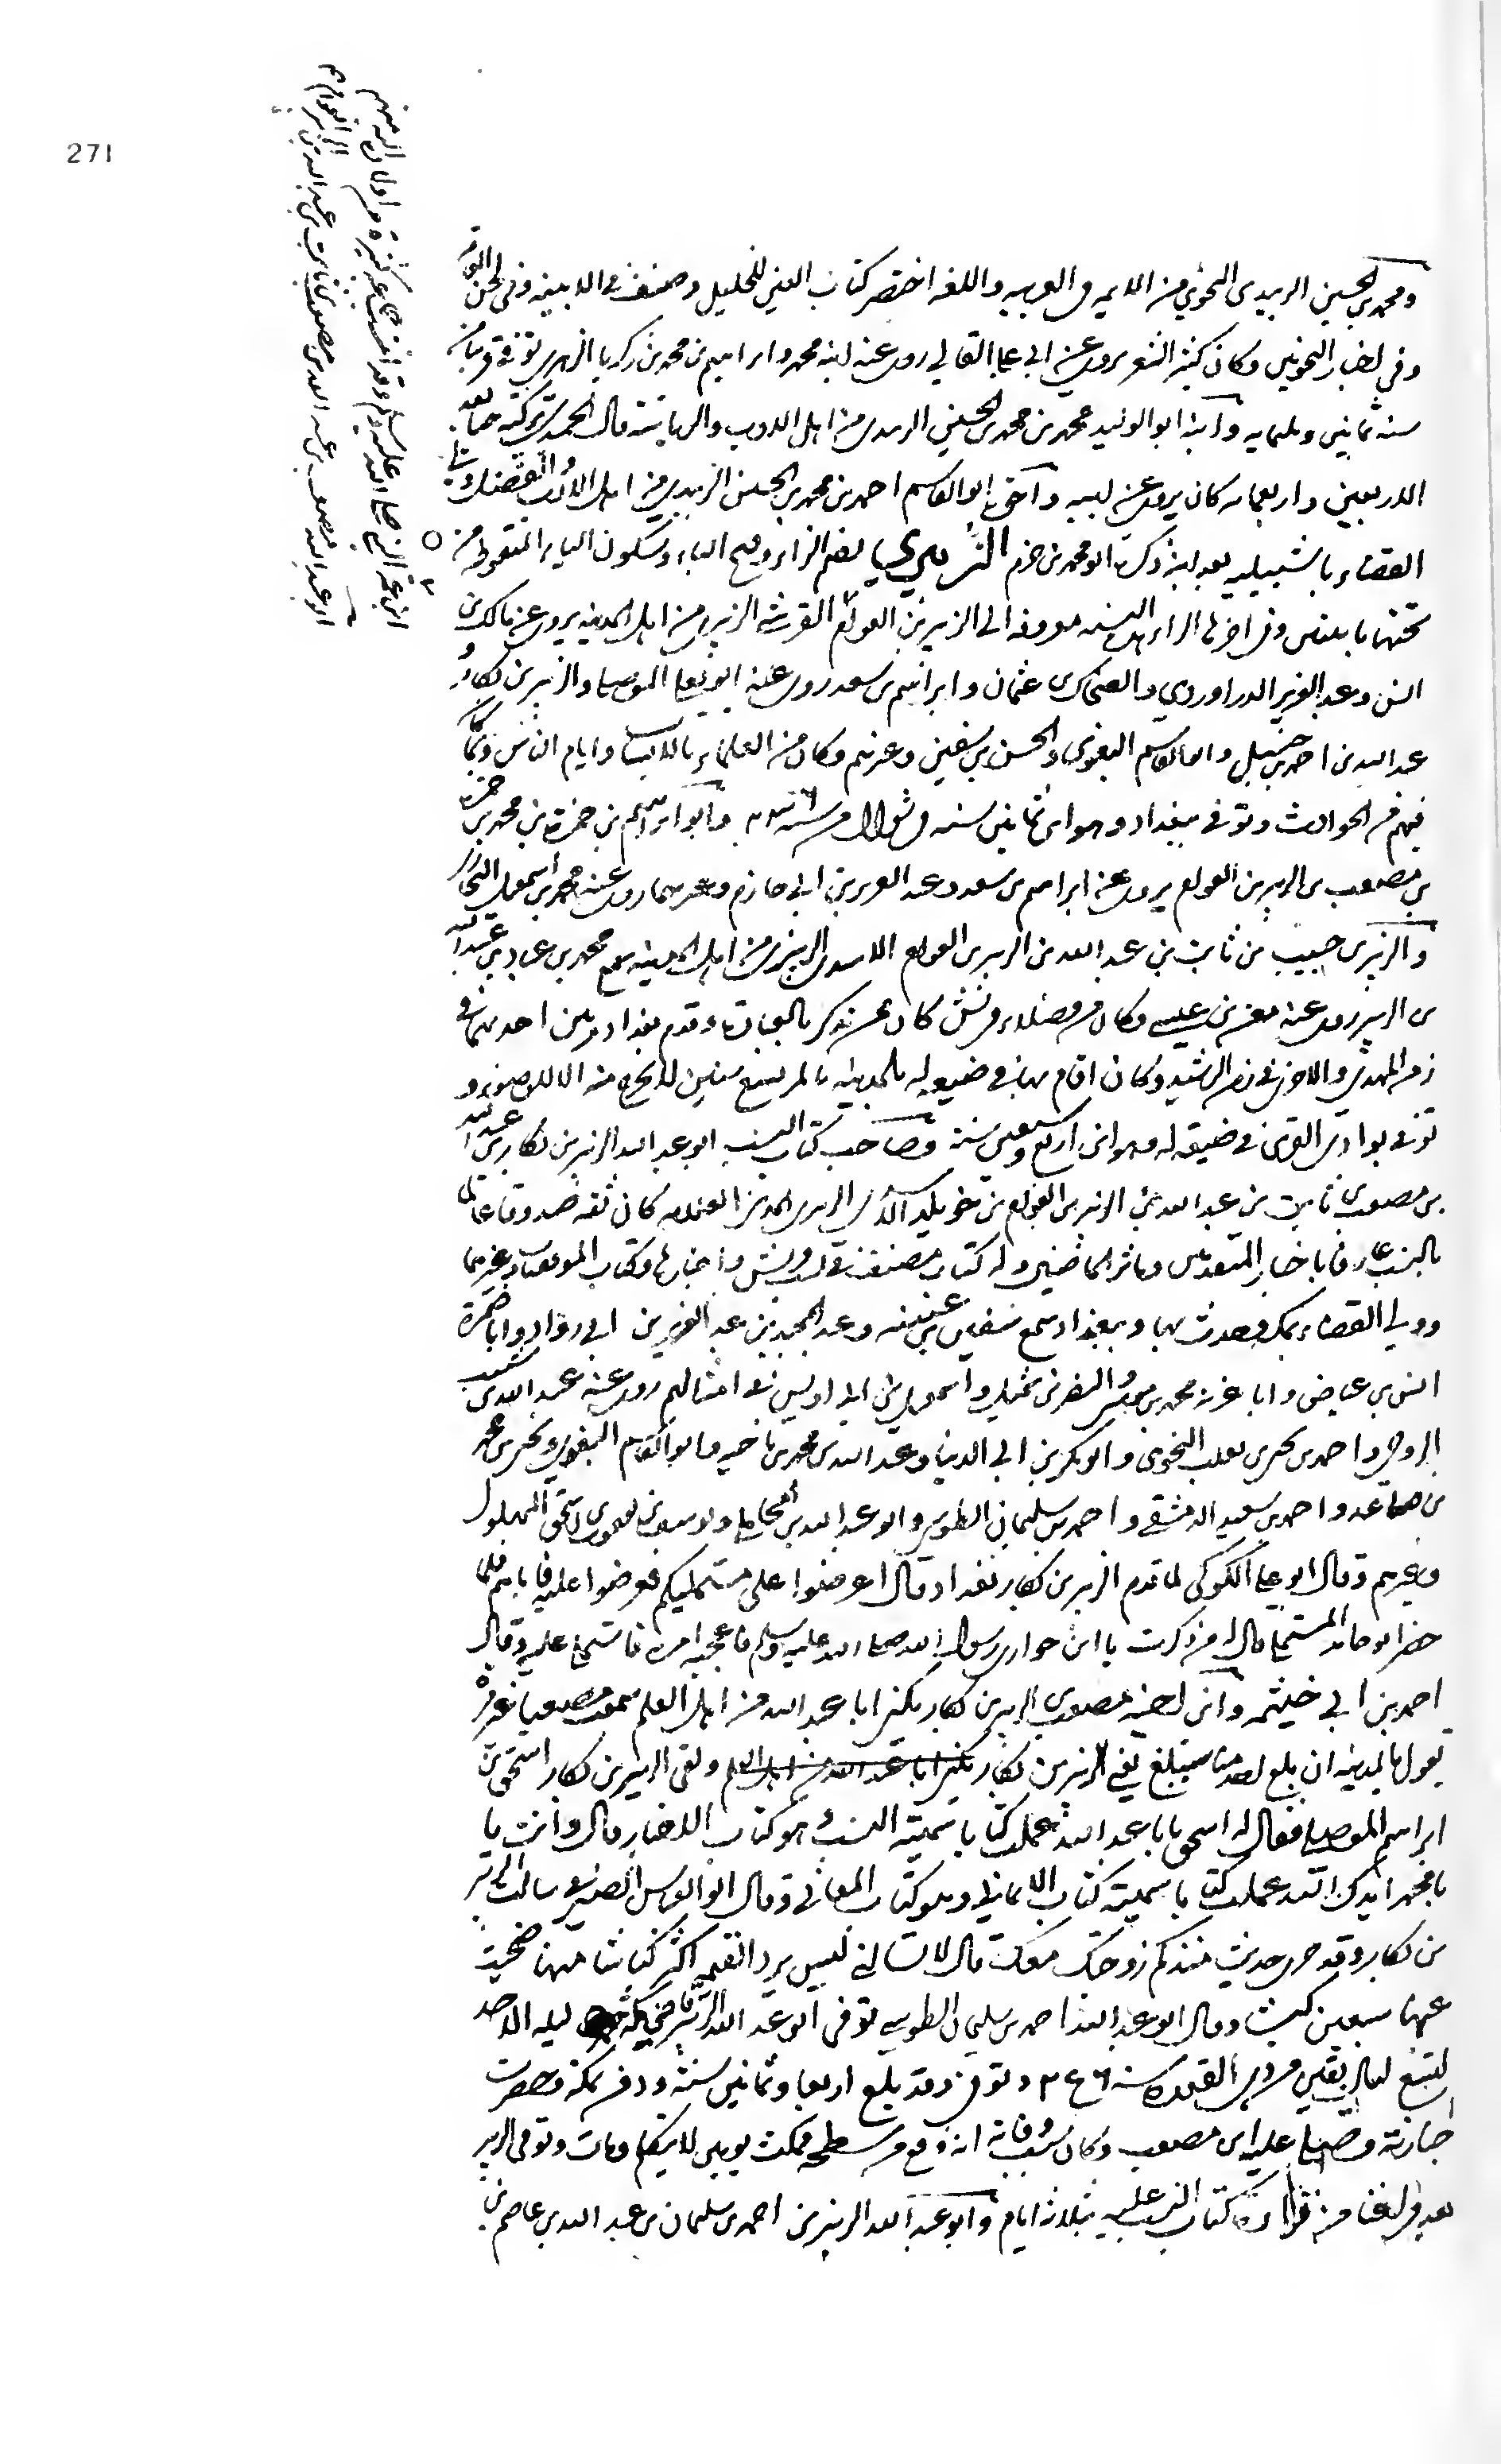 271
ابن عمة النبي صلى الله عليه وسلم وقد انتسب جماعة كثيرة من اولاده اليه منهم
ابو عبد الله مصعب بن عبد الله بن مصعب بن ثابت بن عبد الله بن الزبير بن العوام
ومحمد بن الحسين الزبيدي النحوي من الايمه في العربيه واللغه اختصر كتاب العين للخليل وصنف في الابنيه وفي لحن العامة
وفي اخبار النحويين وكان كثير الشعر يروي عن ابي علي القالي روى عنه ابنه محمد وابراهيم بن محمد بن زكريا الزهري توفي قريبا من
سنه ثمانين وثلثمايه وابنه ابو الوليد محمد بن محمد بن الحسين الزبيدي من اهل الادب والرياسة قال الحميدي تركته حيا بعد
الاربعين واربعمايه كان يروي عن ابيه واخوه ابو القاسم احمد بن محمد بن الحسين الزبيدي من اهل الادب والفضل ولي
القضاء باشبيليه بعد ابيه ذكره ابو محمد بن حزم الزبيري بضم الزاء وفتح الباء وسكون الياء المنقوطه من
تحتها باثنتين وفي اخرها الراء هذه النسبه معروفه الى الزبير بن العوام القرشي الزبيري من اهل المدينه يروي عن مالك بن
انس وعبد العزيز الدراوردي والضحاك بن عثمان وابراهيم بن سعد روى عنه ابو يعلى الموصلي والزبير بن بكار و
عبد الله بن احمد بن حنبل وابو القاسم البغوي والحسن بن سفين وغيرهم وكان من العلماء بالانساب وايام الناس
فيهم من الحوادث وتوفي ببغداد وهو ابن ثمانين سنه في شوال من سنه ٢٣٦ وابو ابراهيم بن حمزة بن محمد بن حمزه
بن مصعب بن الزبير بن العوام يروي عن ابراهيم بن سعد وعبد العزيز بن ابي حازم وغيرهما روى عنه محمد بن اسمعيل البخاري
والزبير بن حبيب بن ثابت بن عبد الله بن الزبير بن العوام الاسدي الزبيري من اهل المدينه سمع محمد بن عباد بن عبد الله
بن الزبير روى عنه معن بن عيسى وكان من فضلاء قريش كان ممن يذكر بالعبادة وقدم بغداد مرتين احديهما في
زمن المهدي والاخرى في زمن الرشيد وكان اقام بها في ضيعه له بالمدينه بالمر بضع سنين لا يخرج منه الا لوضوء و
توفي بوادي القرى في ضيعة له وهو ابن اربع وسبعين سنة وصاحب كتاب النسب ابو عبد الله الزبير بن بكار بن عبد الله
بن مصعب بن ثابت بن عبد الله بن الزبير بن العوام بن خويلد الاسدي الزبيري المديني العلامه كان ثقه صدوقا عالما
بالنسب عارفا باخبار المتقدمين وماثر الماضين وله كتاب مصنف في نسب قريش واخبارها وكتاب الموفقيات وغيرهما
وولي القضاء بمكه وحدث بها وببغداد سمع سفين بن عيينه وعبد المجيد بن عبد العزيز بن ابي رواد وابا ضمرة
انس بن عياض وابا غزيه محمد بن موسى والنضر بن شميل واسمعيل بن ابي اويس في امثالهم روى عنه عبد الله بن شبيب
الربعي واحمد بن يحيى ثعلب النحوي وابو بكر بن ابي الدنيا وعبد الله بن محمد بن ناجيه وابو القاسم البغوي ويحيى بن محمد
بن صاعد واحمد بن سعيد الدمشقي واحمد بن سليمان الطوسي وابو عبد الله بن المحاملي ويوسف بن يعقوب بن اسحق البهلول
وغيرهم وقال ابو علي الكوكبي لما قدم الزبير بن بكار بغداد قال اعرضوا علي مستمليكم فعرضوا عليه فاباهم فلما
حضر ابو حامد المستملي قال له من ذكرت يا ابن حواري رسول الله صلى الله عليه وسلم فاعجبه امره فاستملى عليه وقال
احمد بن ابي خيثمه وابن اخيه مصعب الزبير بن بكار يكنى ابا عبد الله من اهل العلم سمعت مصعبا غير مرة
يقول بالمدينه ان بلغ احد منا سيبلغ يعني الزبير بن بكار يكنى ابا عبد الله من اهل العلم ولقي الزبير بن بكار اسحق بن
ابراهيم الموصلي فقال له اسحق يا ابا عبد الله عملت كتابا سميته النسب وهو كتاب الاخبار قال وانت يا
با محمد ايدك الله عملت كتابا سميته كتاب الاغاني وهو كتاب المعاني وقال ابو العباس الصيرفي سالت الزبير
بن بكار وقد جرى حديث منذ كم زوجتك معك قال لا تسالني ليس يرد القيمه اكثر كباشا منها ضحيت
عنها سبعين كبشا وقال ابو عبد الله احمد بن سليمان الطوسي توفي ابو عبد الله الزبير قاضي مكه ليله الاحد
لتسع ليال بقين من ذي القعده سنه ٢٥٦ وتوفي وقد بلغ اربعا وثمانين سنة ودفن بمكه وحضرت
جنازته وصلى عليه ابنه مصعب وكان سبب وفاته انه وقع من سطحه فمكث يومين لا يتكلم ومات وتوفي الزبير
بعد فراغنا من قراءة كتاب النسب عليه بثلاثة ايام وابو عبد الله الزبير بن احمد بن سليمان بن عبد الله بن عاصم بن